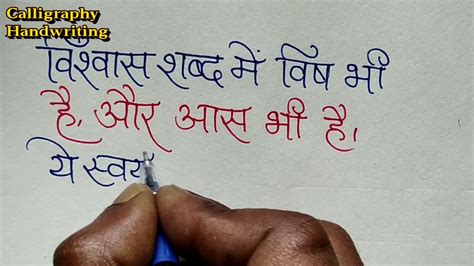 Calligraphy
Handwriting
विश्वास शब्द में विष भी
है, और आस भी है।
ये स्वय